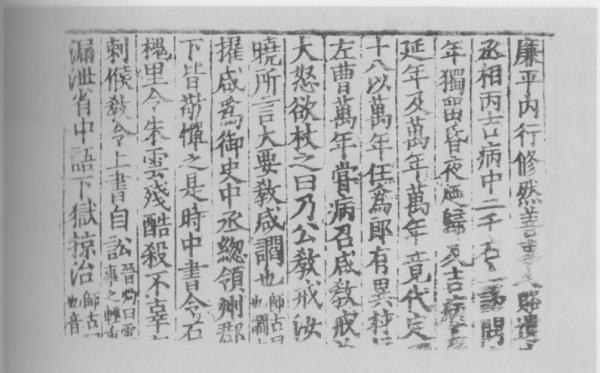 廉平内行修然善事人賂遺
丞相丙吉病中二千石上謁問
年獨留昏夜廼歸及吉病甚
延年及萬年萬年竟代定
十八以萬年任爲郎有異材
左曹萬年嘗病召咸敎戒
大怒欲杖之曰乃公敎戒汝
曉所言大要敎咸讇也師古曰也讇
擢咸爲御史中丞緫領州郡
下皆敬憚之是時中書令石
槐里令朱雲殘酷殺不辜
刺候敎令上書自訟晉灼曰雲事之輕重
漏泄省中語下獄掠治師古也音